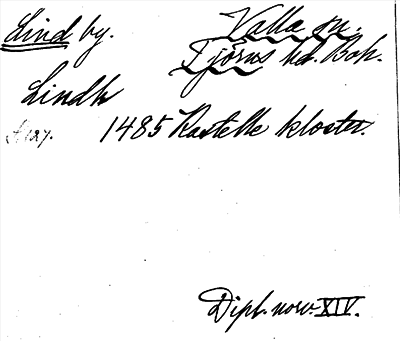 Lindby. Valla sn.
Tjörns hd. Boh.
Lindh
1485 Kastelle kloster.
Dipl. norv. XIV.